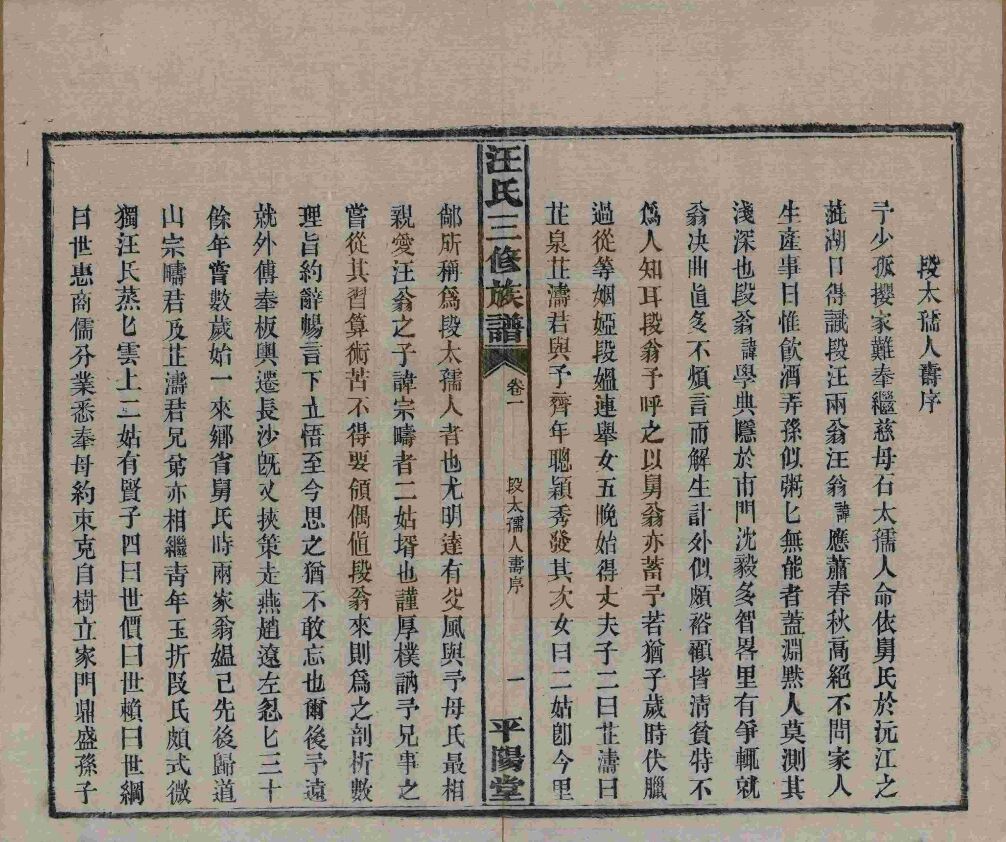 段太孺人壽序
予少孤攖家難奉繼慈母石太孺人命依舅氏於沅江之
茈湖口得識段汪兩翁汪翁諱應蕭春秋高絕不問家人
生產事日惟飲酒弄孫似粥匕無能者蓋淵黙人莫測其
淺深也段翁諱學典隱於市門沈毅多智畧里有爭輒就
翁决曲直多不煩言而解生計外似頗裕顧皆淸貧特不
爲人知耳段翁予呼之以舅翁亦蓄予若猶子歲時伏臘
過從等姻婭段媼連舉女五晚始得丈夫子二曰芷濤曰
芷泉芷濤君與予齊年聰穎秀發其次女曰二姑卽今里
汪氏三修族譜
卷一
段太孺人壽序
一
平陽堂
鄰所稱爲段太孺人者也尤明達有父風與予母氏最相
親愛汪翁之子諱宗疇者二姑壻也謹厚樸訥予兄事之
嘗從其習算術苦不得要領偶值段翁來則爲之剖析數
理旨約辭暢言下立悟至今思之猶不敢忘也爾後予遠
就外傅奉板輿遷長沙旣又挾策走燕趙遼左忽匕三十
餘年嘗數歲始一來鄉省舅氏時兩家翁媼已先後歸道
山宗疇君及芷濤君兄弟亦相繼靑年玉折段氏頗式微
獨汪氏蒸匕雲上二姑有賢子四曰世價曰世賴曰世綱
曰世惠商儒分業悉奉母約束克自樹立家門鼎盛孫子